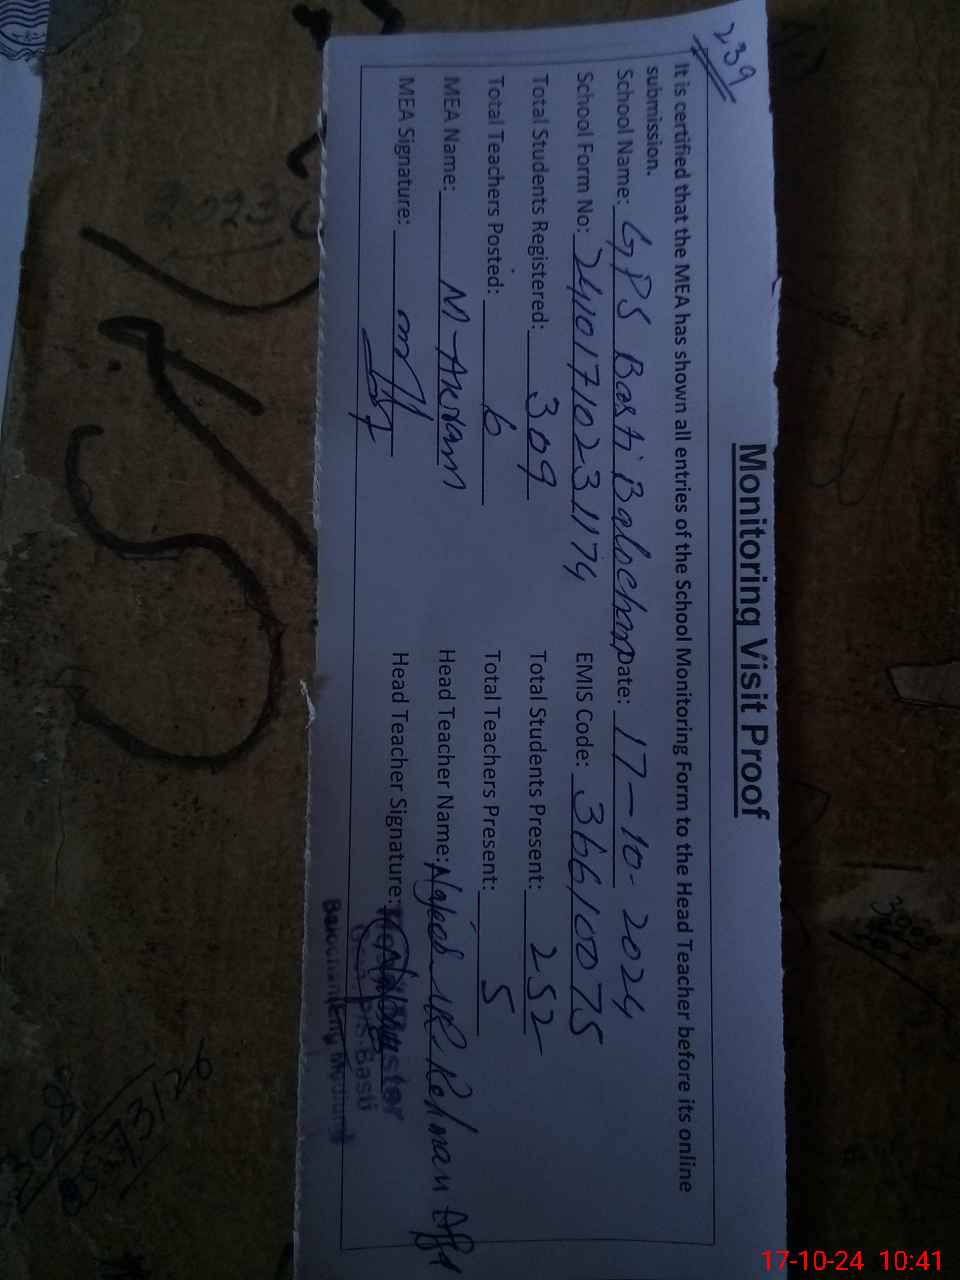 239
Monitoring Visit Proof
It is certified that the MEA has shown all entries of the School Monitoring Form to the Head Teacher before its online
submission.
School Name: GPS Basti Balochan Date: 17-10-2024
School Form No: 24101710231174 EMIS Code: 36610075
Total Students Registered: 309 Total Students Present: 252
Total Teachers Posted: 6 Total Teachers Present: 5
MEA Name: M-Akram Head Teacher Name: Najeeb ur Rehman
MEA Signature: Head Teacher Signature:
Basti
17-10-24 10:41